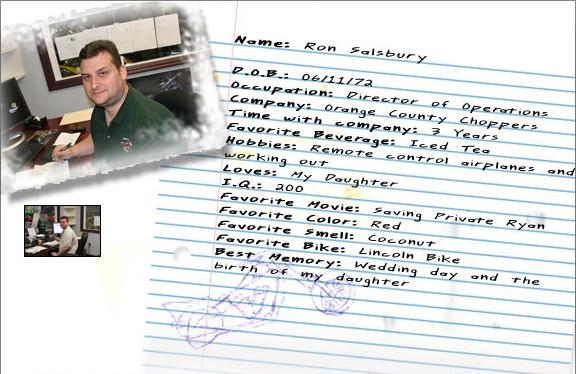 Name: Ron Salsbury
D.O.B.: 06/11/72
Occupation: Director of Operations
Company: Orange County Choppers
Time with company: 3 Years
Favorite Beverage: Iced Tea
Hobbies: Remote control airplanes and
working out
Loves: My Daughter
I.Q.: 200
Favorite Movie: Saving Private Ryan
Favorite Color: Red
Favorite Smell: Coconut
Favorite Bike: Lincoln Bike
Best Memory: Wedding day and the
birth of my daughter